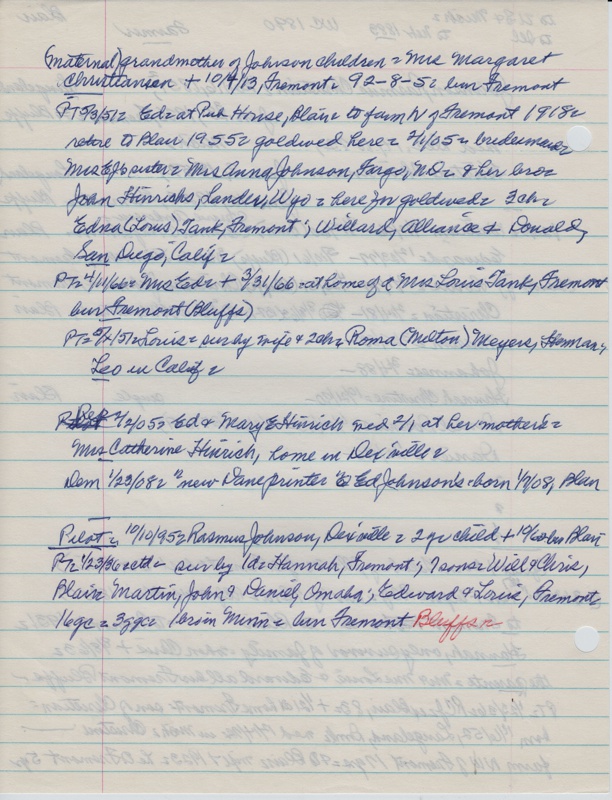 (maternal) grandmother of Johnson children = Mrs Margaret
Christiansen + 10/4/13, Fremont = 92-8-5 = bur Fremont
PT= 5/3/51= Ed= at Pub House, Blair= to farm N of Fremont 1918=
retire to Blair 1955= goldwed here= 2/1/05= bridesmaid
Mrs EJ's sister= Mrs Anna Johnson, Fargo, ND= & her bro=
John Hinrichs, Lander, Wyo = here for goldwed= 3ch=
Edna (Louis) Tank, Fremont; Willard, Alliance & Donald,
San Diego, Calif=
PT= 4/11/66= Mrs Ed= + 3/31/66= at home of d Mrs Louis Tank, Fremont
bur Fremont (Bluffs)
PT= Louis= sur by wife & 2ch= Roma (Milton) Meyers, Herman;
Leo in Calif=
Rep 2/2/05= Ed & Mary E Hinrich wed 2/1 at her mother's=
Mrs Catherine Hinrich, home in Dex'ville=
Dem 1/23/08= "new Dane printer" @ Ed Johnson's= born 1/7/08, Blair
Pilot= 10/10/95= Rasmus Johnson, Dex'ville= 2 yr child + bur Blair
PT= 1/23/36= sur by 1d= Hannah, Fremont; 7 sons= Will & Chris,
Blair= Martin, John & Daniel, Omaha; Edward & Louis, Fremont,
16gc= 3ggc= 1 bro in Minn= bur Fremont Bluffs=